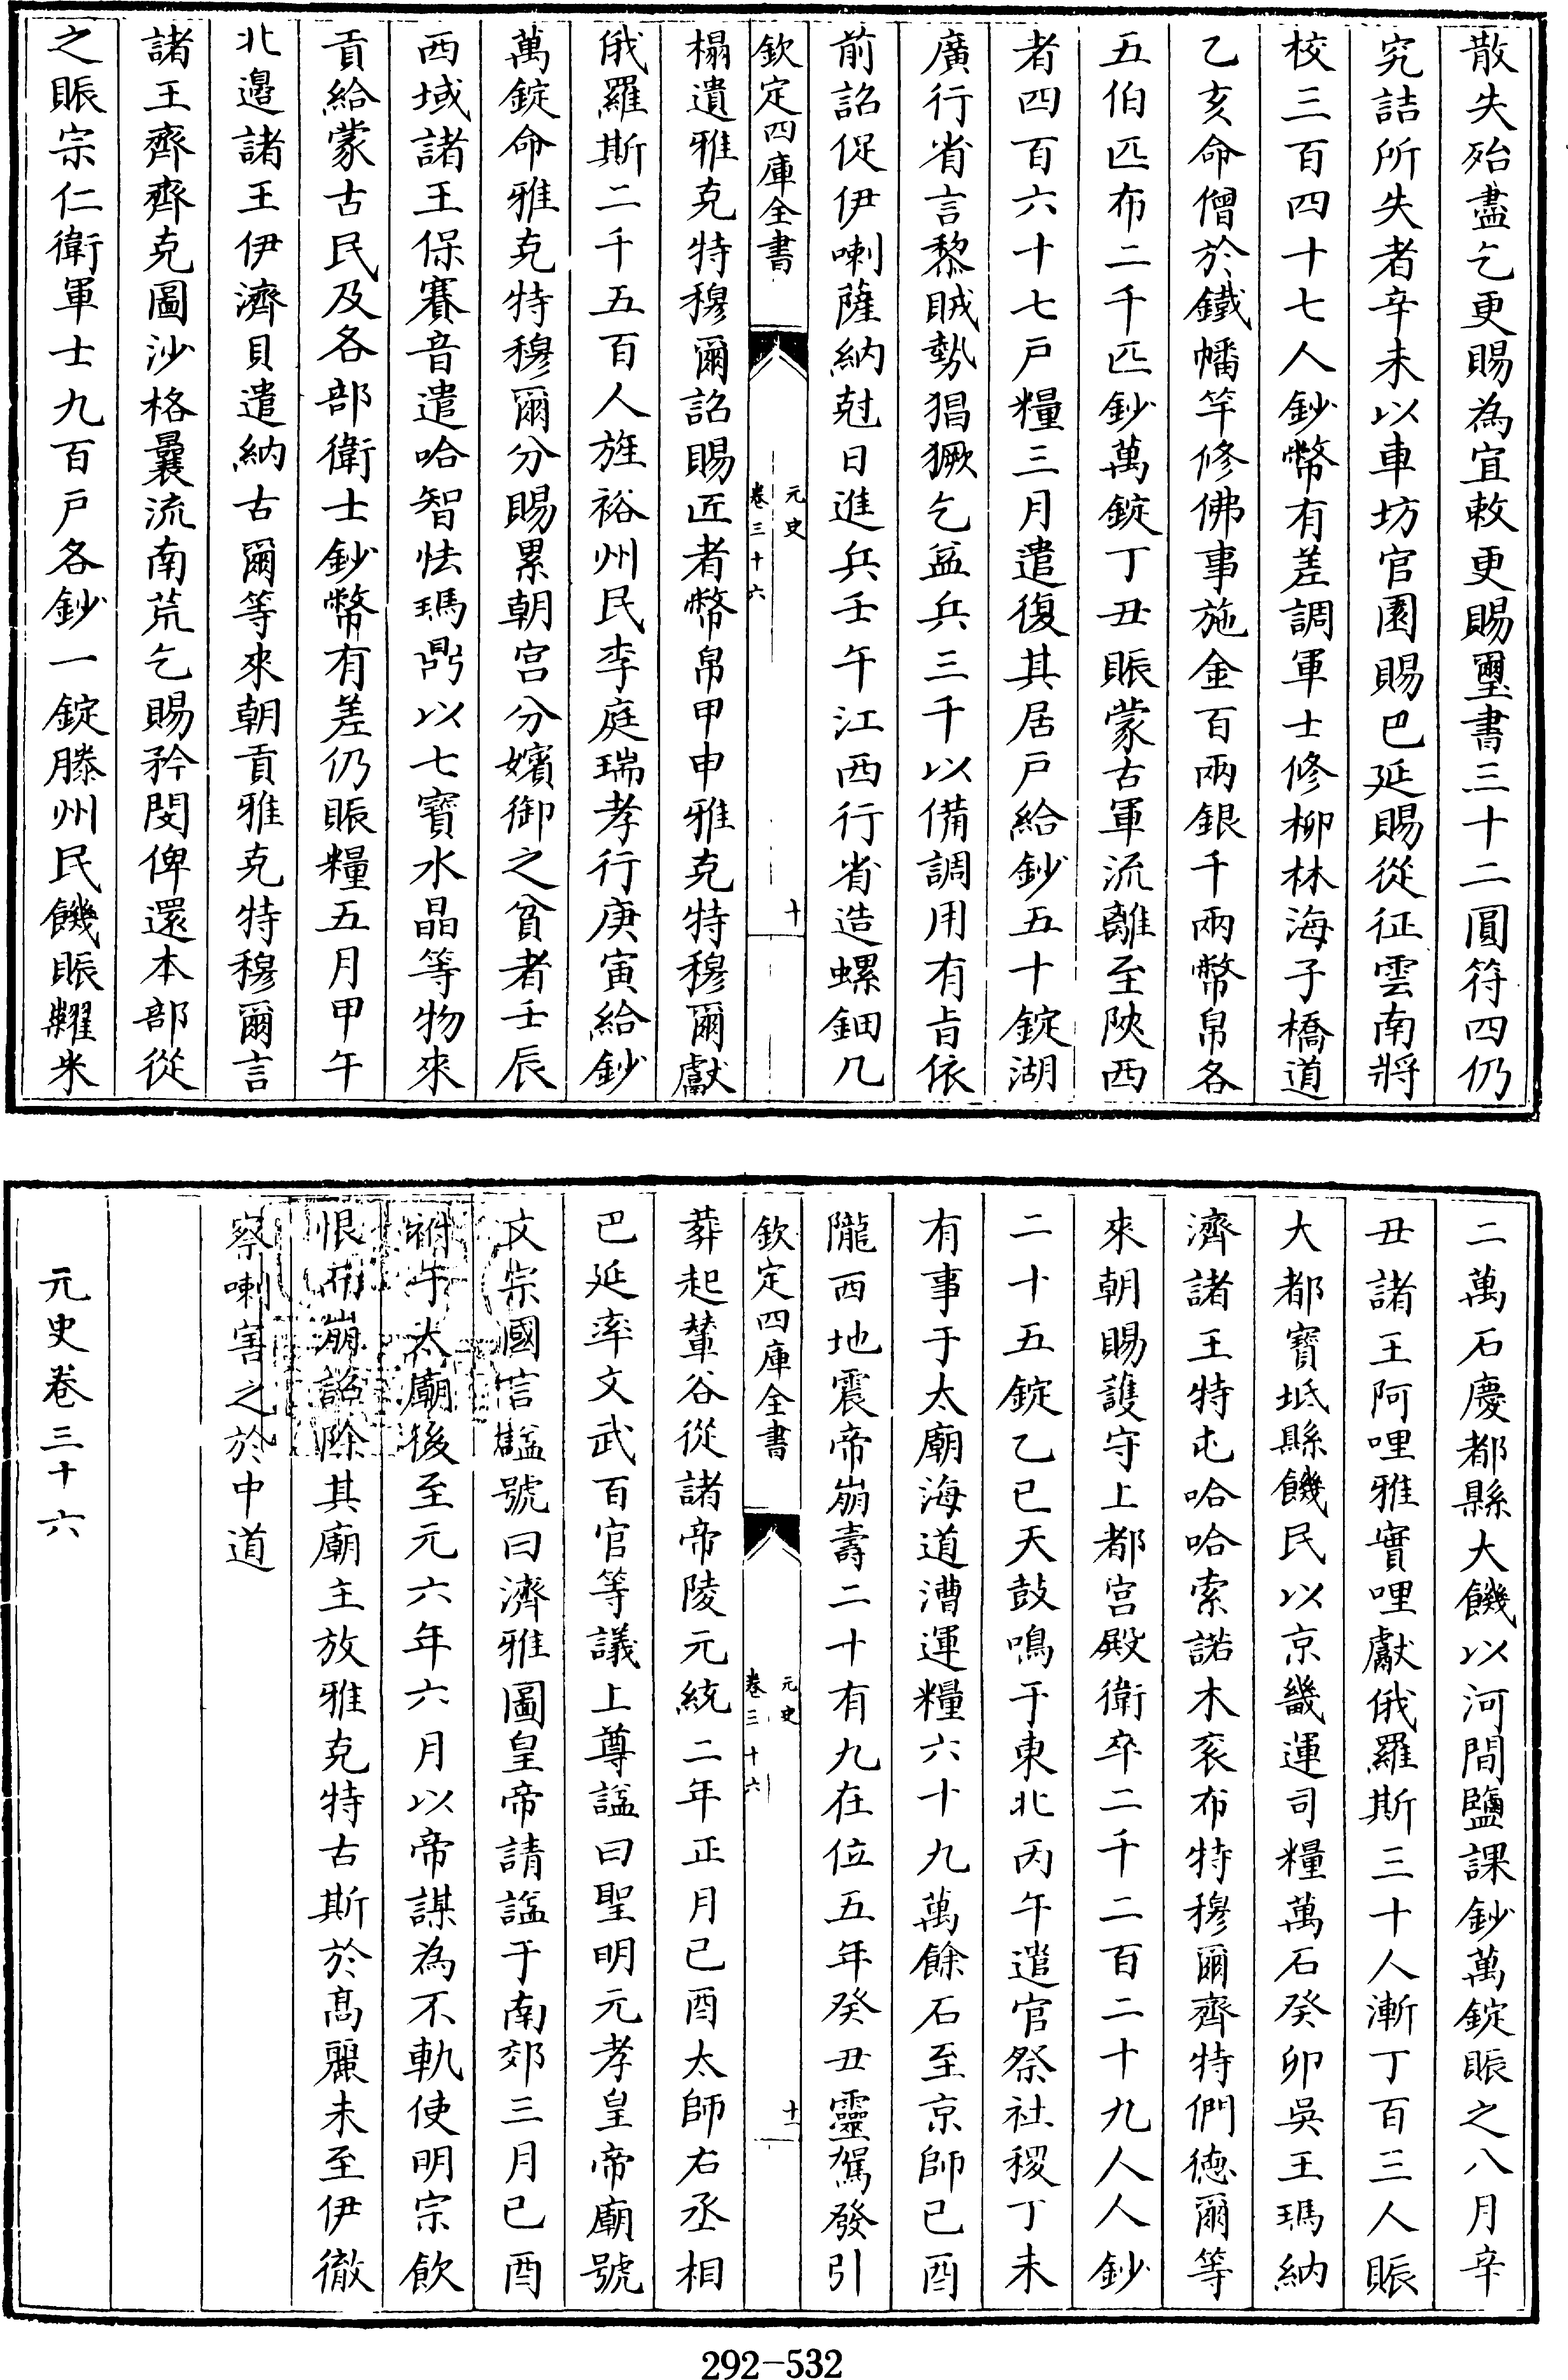 散失殆盡乞更賜為宜敕更賜璽書三十二圓符四仍
究詰所失者辛未以車坊官園賜巴延賜從征雲南將
校三百四十七人鈔幣有差調軍士修柳林海子橋道
乙亥命僧於鐵幡竿修佛事施金百兩銀千兩幣帛各
五伯匹布二千匹鈔萬錠丁丑賑蒙古軍流離至陝西
者四百六十七戸糧三月遣復其居戸給鈔五十錠湖
廣行省言黎賊勢猖獗乞益兵三千以備調用有㫖依
前詔促伊喇薩納尅日進兵壬午江西行省造螺鈿几
欽定四庫全書
元史
卷三十六
十
榻遺雅克特穆爾詔賜匠者幣帛甲申雅克特穆爾獻
俄羅斯二千五百人旌裕州民李庭瑞孝行庚寅給鈔
萬錠命雅克特穆爾分賜累朝宫分嬪御之貧者壬辰
西域諸王保賽音遣哈智怯瑪鼎以七寶水晶等物來
貢給蒙古民及各部衛士鈔幣有差仍賑糧五月甲午
北邉諸王伊濟貝遣納古爾等來朝貢雅克特穆爾言
諸王齊齊克圖沙格曩流南荒乞賜矜閔俾還本部從
之賑宗仁衛軍士九百戸各鈔一錠滕州民饑賑糶米
二萬石慶都縣大饑以河間鹽課鈔萬錠賑之八月辛
丑諸王阿哩雅實哩獻俄羅斯三十人漸丁百三人賑
大都寶坻縣饑民以京畿運司糧萬石癸卯吳王瑪納
濟諸王特屯哈哈索諾木衮布特穆爾齊特們徳爾等
來朝賜護守上都宫殿衛卒二千二百二十九人人鈔
二十五錠乙巳天鼓鳴于東北丙午遣官祭社稷丁未
有事于太廟海道漕運糧六十九萬餘石至京師己酉
隴西地震帝崩壽二十有九在位五年癸丑靈駕發引
欽定四庫全書
元史
卷三十六
十一
葬起輦谷從諸帝陵元統二年正月己酉太師右丞相
巴延率文武百官等議上尊諡曰聖明元孝皇帝廟號
文宗國言諡號曰濟雅圖皇帝請諡于南郊三月己酉
祔于太廟後至元六年六月以帝謀為不軌使明宗飲
恨而崩詔除其廟主放雅克特古斯於髙麗未至伊徹
察喇害之於中道
元史卷三十六
292-532